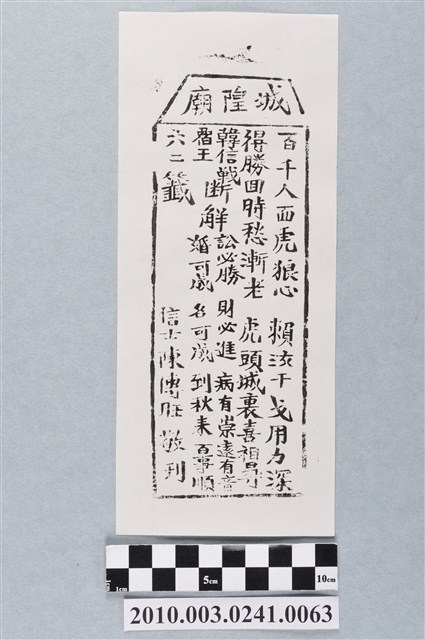 城隍廟
百千人面虎狼心 賴汝干戈用力深
得勝回時愁漸老 虎頭城裏喜相尋
韓信戰霸王
斷解 訟必勝 財必進 病有祟遠有音
婚可成 名可成 到秋來 百事順
六二籤
信士陳傳旺敬刊
5cm
10cm
2010.003.0241.0063